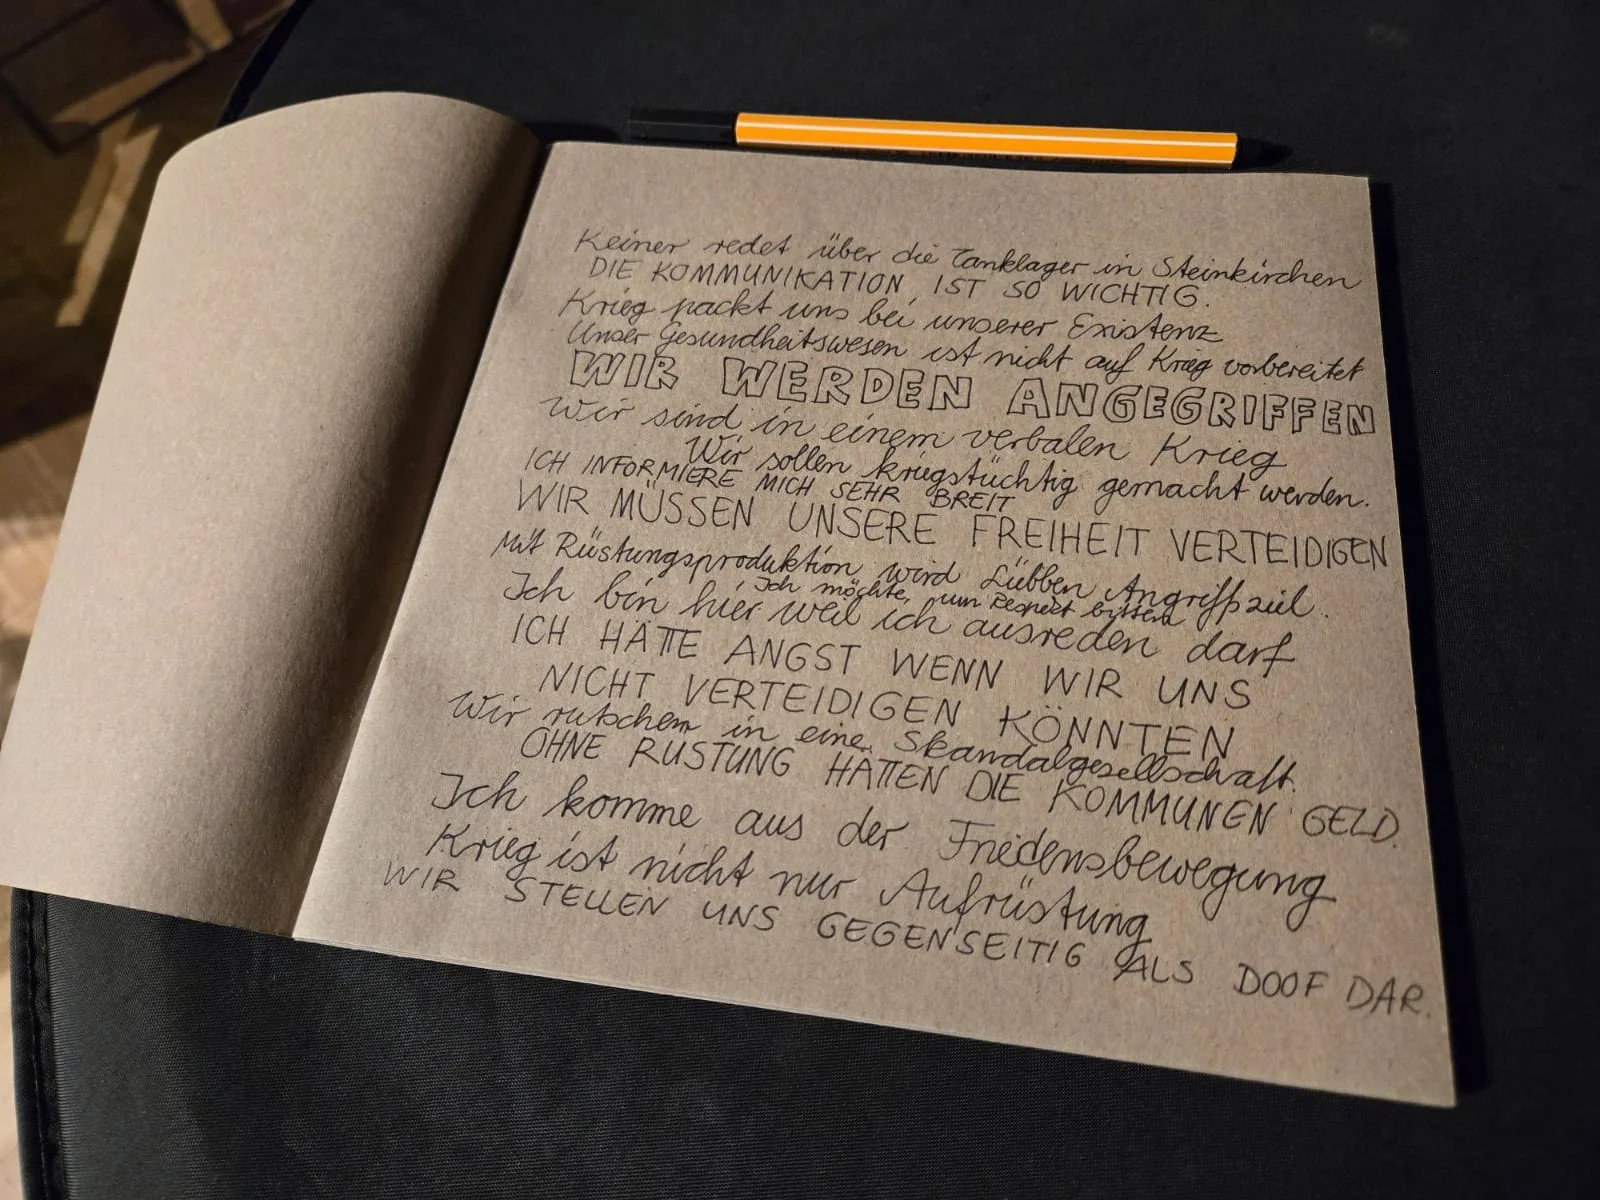 Keiner redet über die Tanklager in Steinkirchen
DIE KOMMUNIKATION IST SO WICHTIG.
Krieg packt uns bei unserer Existenz
Unser Gesundheitswesen ist nicht auf Krieg vorbereitet
WIR WERDEN ANGEGRIFFEN
Wir sind in einem verbalen Krieg
Wir sollen kriegstüchtig gemacht werden.
ICH INFORMIERE MICH SEHR BREIT
WIR MÜSSEN UNSERE FREIHEIT VERTEIDIGEN
Mit Rüstungsproduktion wird Lübben Angriffsziel.
Ich möchte um Respekt bitten
Ich bin hier weil ich ausreden darf
ICH HÄTTE ANGST WENN WIR UNS
NICHT VERTEIDIGEN KÖNNTEN
Wir rutschen in eine Skandalgesellschaft.
OHNE RÜSTUNG HÄTTEN DIE KOMMUNEN GELD.
Ich komme aus der Friedensbewegung
Krieg ist nicht nur Aufrüstung
WIR STELLEN UNS GEGENSEITIG ALS DOOF DAR.